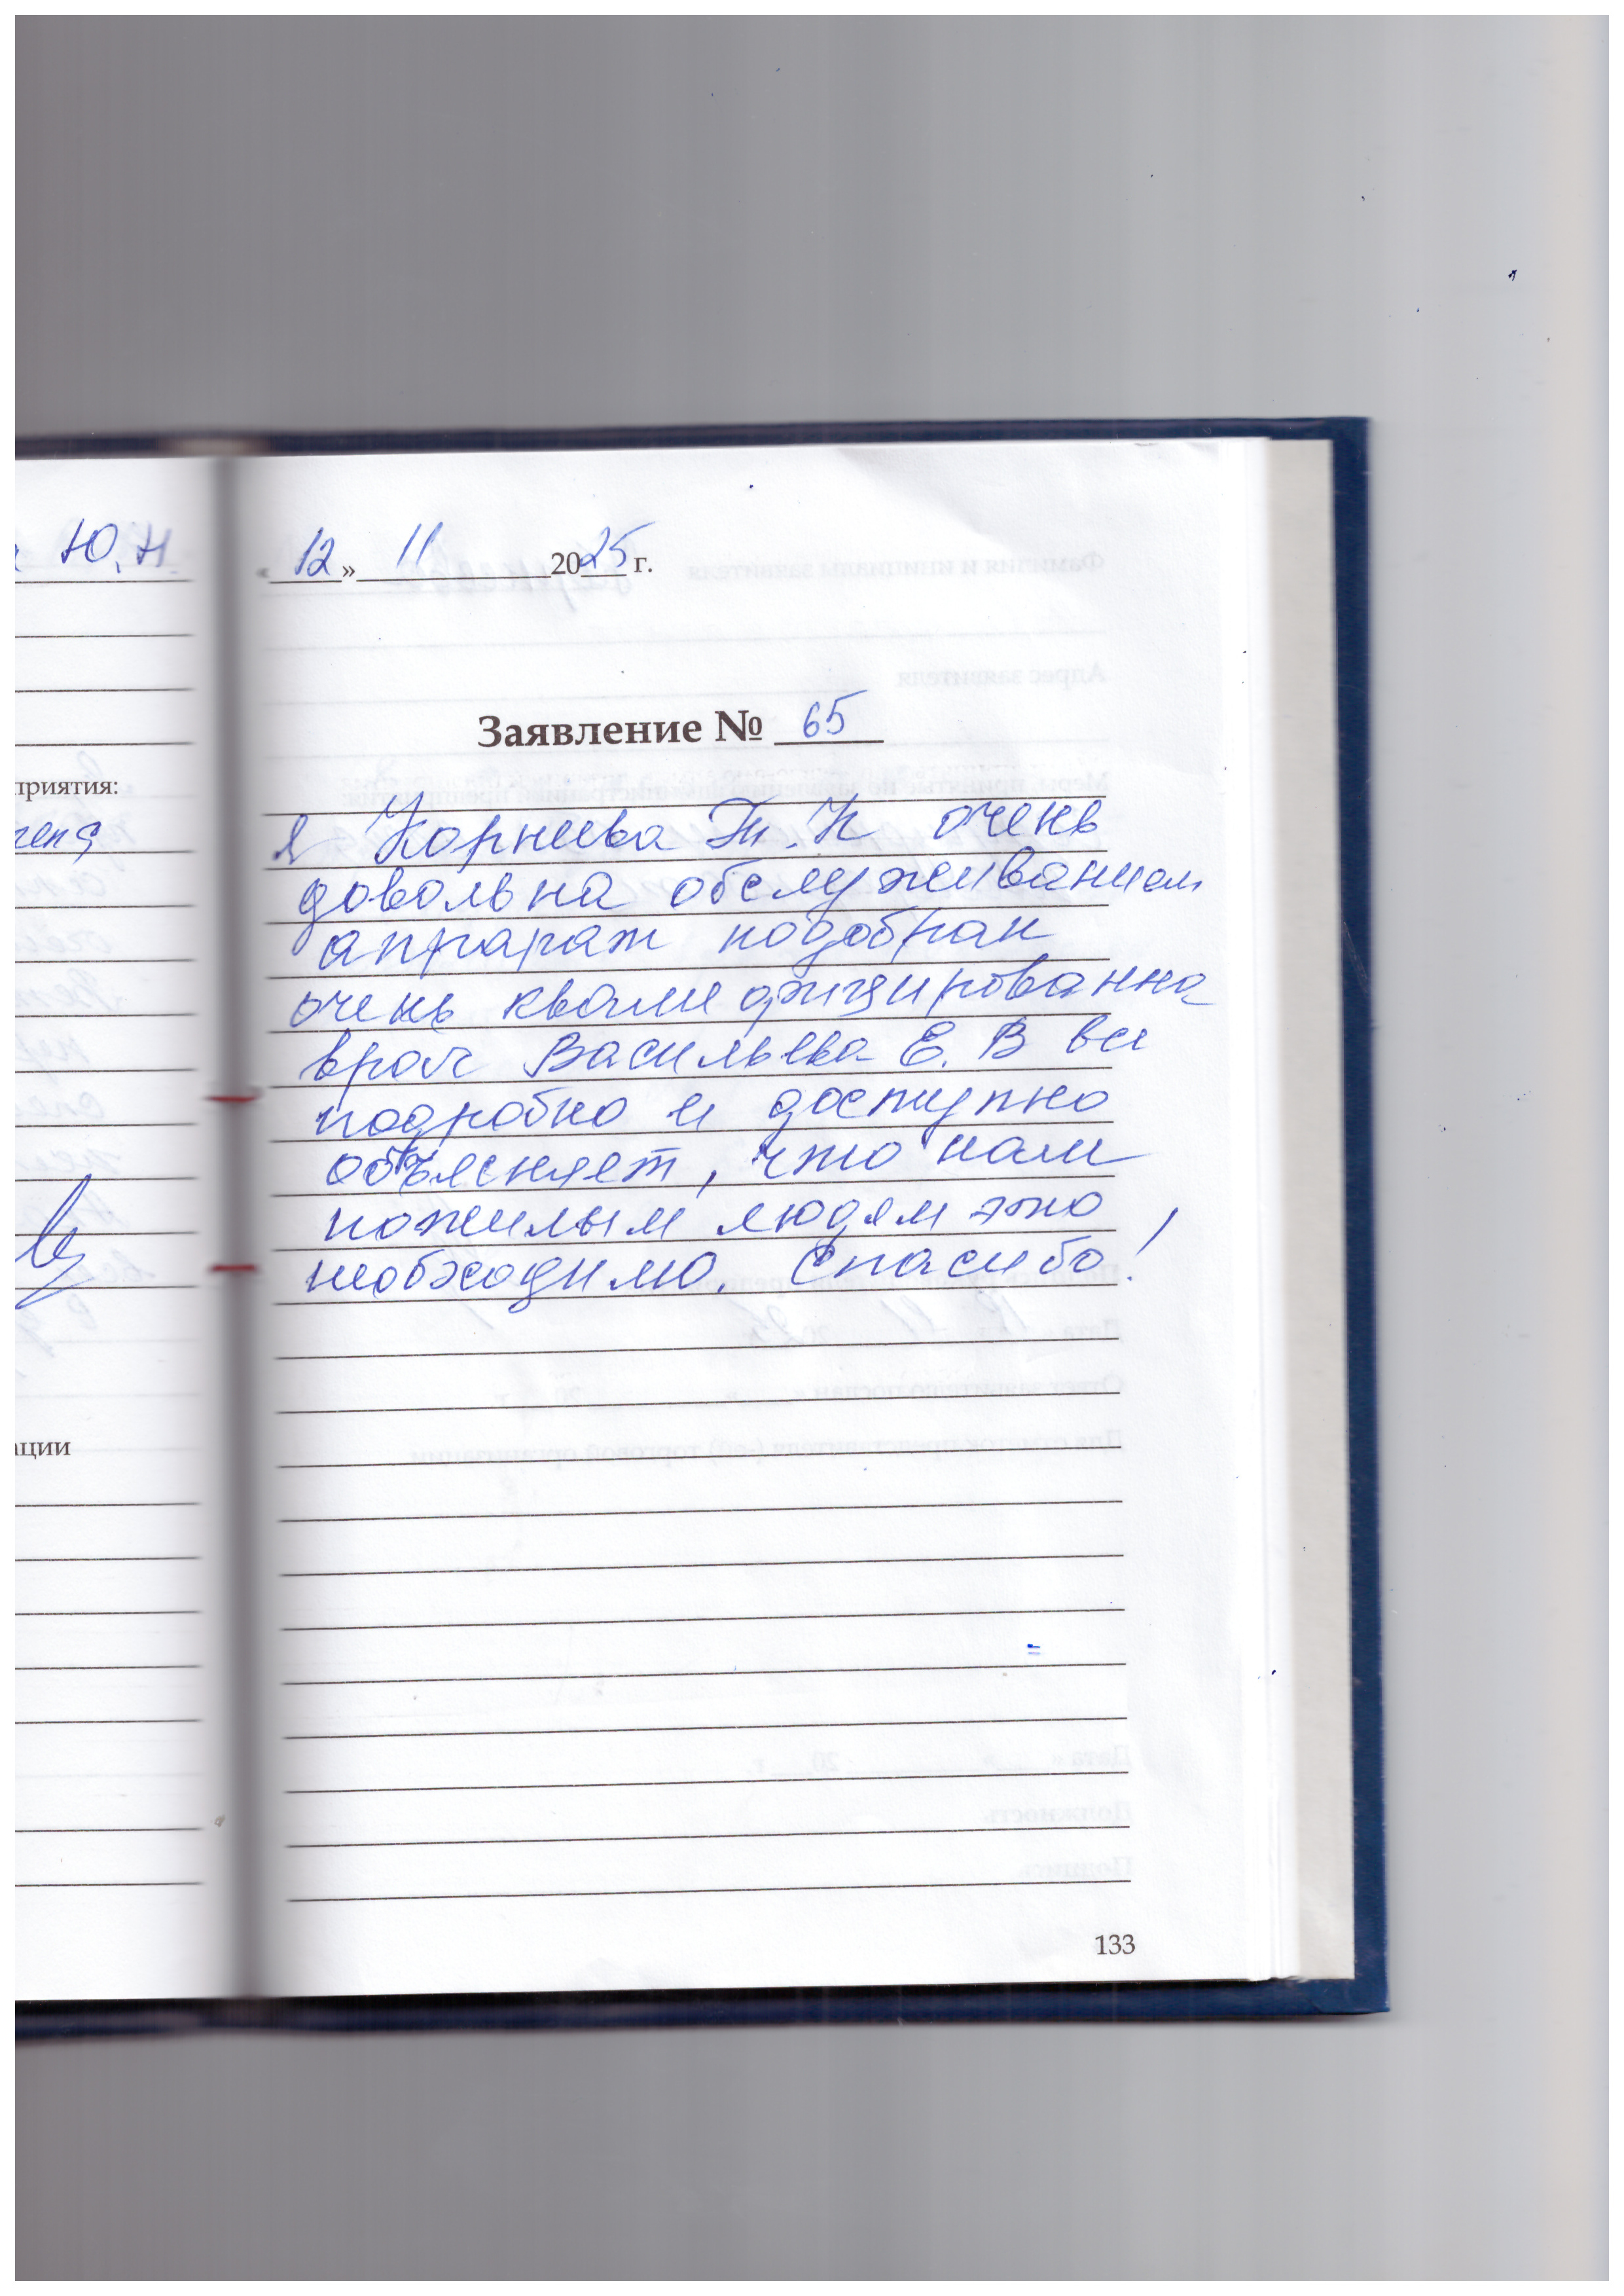 Ю.Н.
«12» 11 2025 г.
Заявление № 65
приятия:
Я Корнеева Т. К очень
довольна обслуживанием
аппарат подобран
очень квалифицированна
врач Васильева Е. В все
подробно и доступно
объясняет, что нам
пожилым людям это
необходимо. Спасибо!
ации
133